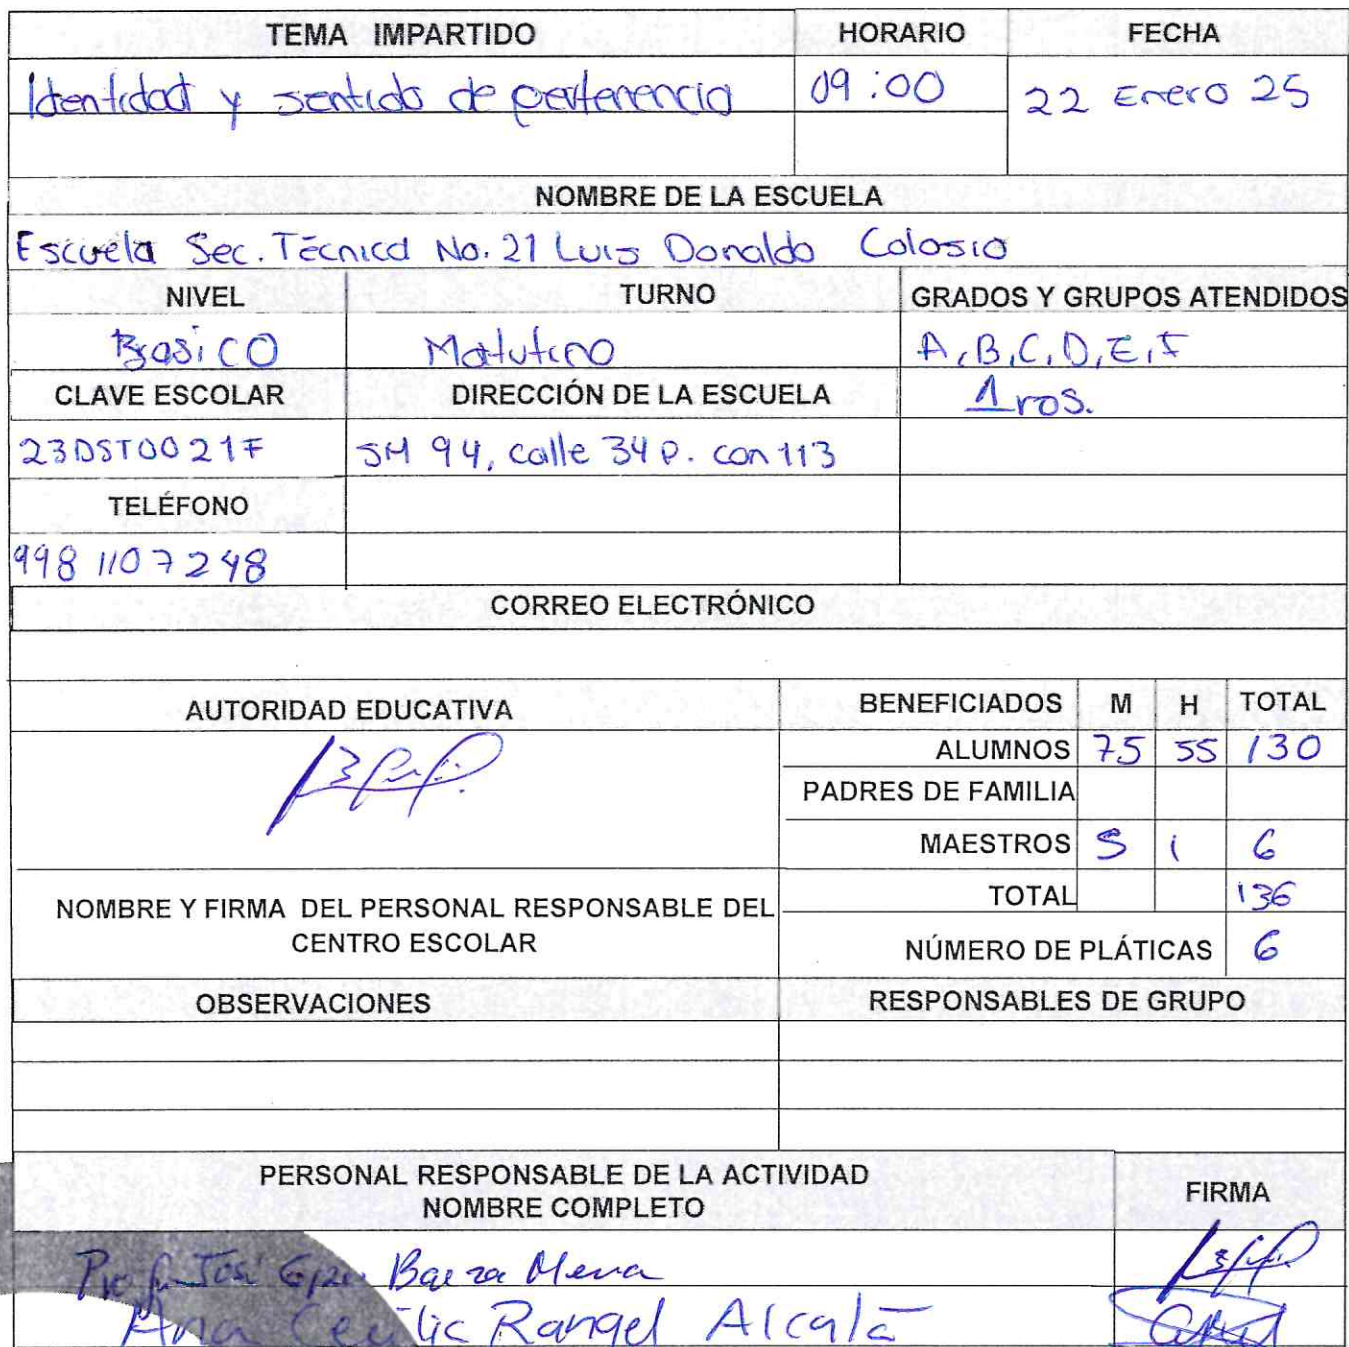 TEMA IMPARTIDO HORARIO FECHA
Identidad y sentido de pertenencia 09:00 22 Enero 25
NOMBRE DE LA ESCUELA
Escuela Sec. Técnica No. 21 Luis Donaldo Colosio
NIVEL TURNO GRADOS Y GRUPOS ATENDIDOS
Basico Matutino A,B,C,D,E,F
CLAVE ESCOLAR DIRECCIÓN DE LA ESCUELA 1ros.
23DST0021F SM 94, calle 34 P. con 113
TELÉFONO
998 1107248
CORREO ELECTRÓNICO
AUTORIDAD EDUCATIVA BENEFICIADOS M H TOTAL
ALUMNOS 75 55 130
PADRES DE FAMILIA
MAESTROS 5 1 6
TOTAL 136
NOMBRE Y FIRMA DEL PERSONAL RESPONSABLE DEL
CENTRO ESCOLAR
NÚMERO DE PLÁTICAS 6
OBSERVACIONES RESPONSABLES DE GRUPO
PERSONAL RESPONSABLE DE LA ACTIVIDAD
NOMBRE COMPLETO FIRMA
José Gpe. Baeza Mena
Ana Cecilia Rangel Alcalá